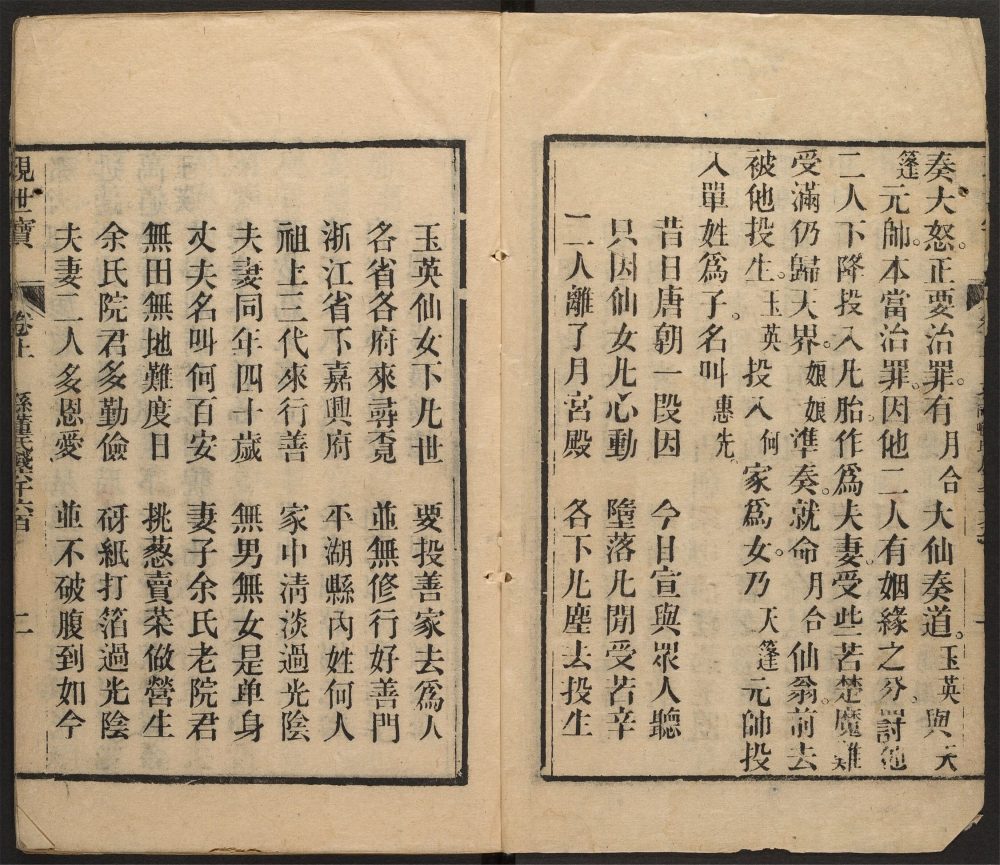 奏大怒。正要治罪。有月合大仙奏道。玉英與天
篷元帥。本當治罪。因他二人有姻緣之分。罰他
二人下降投入凢胎。作爲夫妻。受些苦楚魔難
受滿仍歸天界。娘娘準奏。就命月合仙翁。前去
被他投生。玉英投入何家爲女。乃天篷元帥投
入單姓爲子。名叫惠先。
昔日唐朝一段因　今日宣與眾人聽
只因仙女凢心動　墮落凢間受苦辛
二人離了月宮殿　各下凢塵去投生
玉英仙女下凢世　要投善家去爲人
各省各府來尋覓　並無修行好善門
浙江省下嘉興府　平湖縣內姓何人
祖上三代來行善　家中淸淡過光陰
夫妻同年四十歲　無男無女是单身
丈夫名叫何百安　妻子余氏老院君
無田無地難度日　挑葱賣菜做營生
余氏院君多勤儉　砑紙打箔過光陰
夫妻二人多恩愛　並不破腹到如今
現世寶　卷上　孫董氏錢六千六百　二